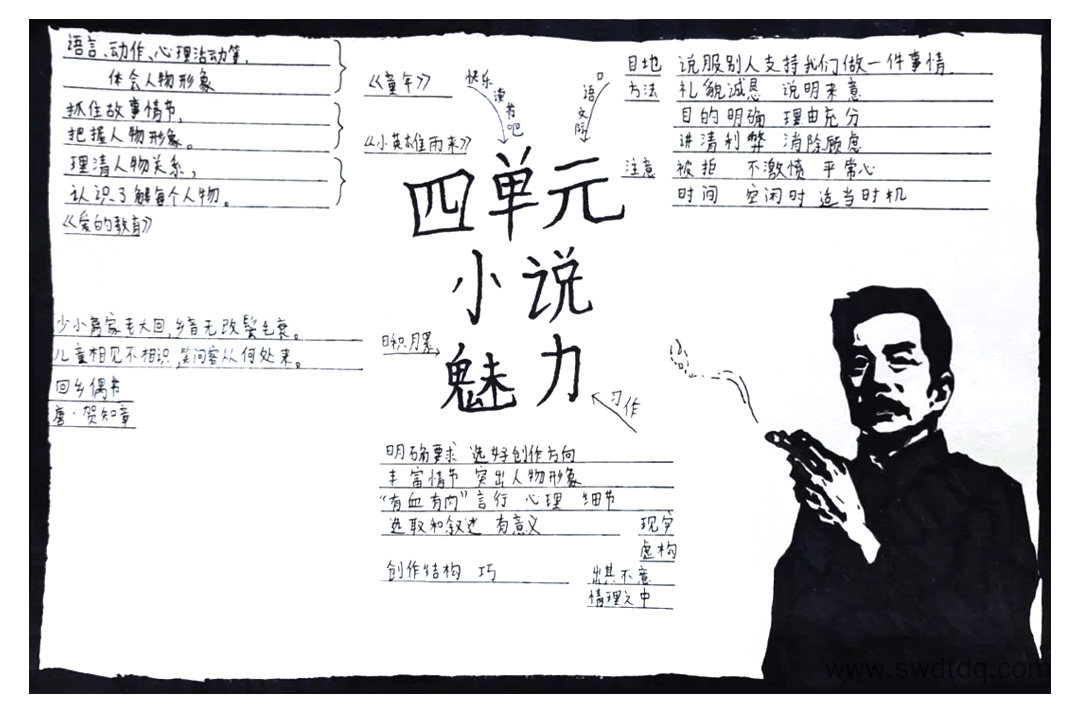 语言、动作、心理活动等,
体会人物形象
抓住故事情节,
把握人物形象。
理清人物关系,
认识了解每个人物。
《爱的教育》
《童年》
《小英雄雨来》
快乐读书吧
口语交际
目地 说服别人支持我们做一件事情
方法 礼貌诚恳 说明来意
目的明确 理由充分
讲清利弊 消除顾虑
注意 被拒 不激愤 平常心
时间 空闲时 适当时机
四单元
小说
魅力
少小离家老大回,乡音无改鬓毛衰。
儿童相见不相识,笑问客从何处来。
回乡偶书
唐·贺知章
日积月累
习作
明确要求 选好创作方向
丰富情节 突出人物形象
“有血有肉”言行 心理 细节
选取和叙述 有意义
现实
虚构
创作结构 巧
出其不意
情理之中
www.swdtdq.com